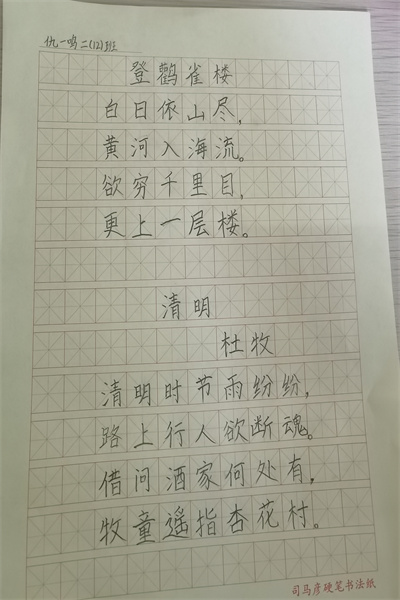 仇一鸣二(12)班
登鹳雀楼
白日依山尽,
黄河入海流。
欲穷千里目,
更上一层楼。
清明
杜牧
清明时节雨纷纷,
路上行人欲断魂。
借问酒家何处有,
牧童遥指杏花村。
司马彦硬笔书法纸